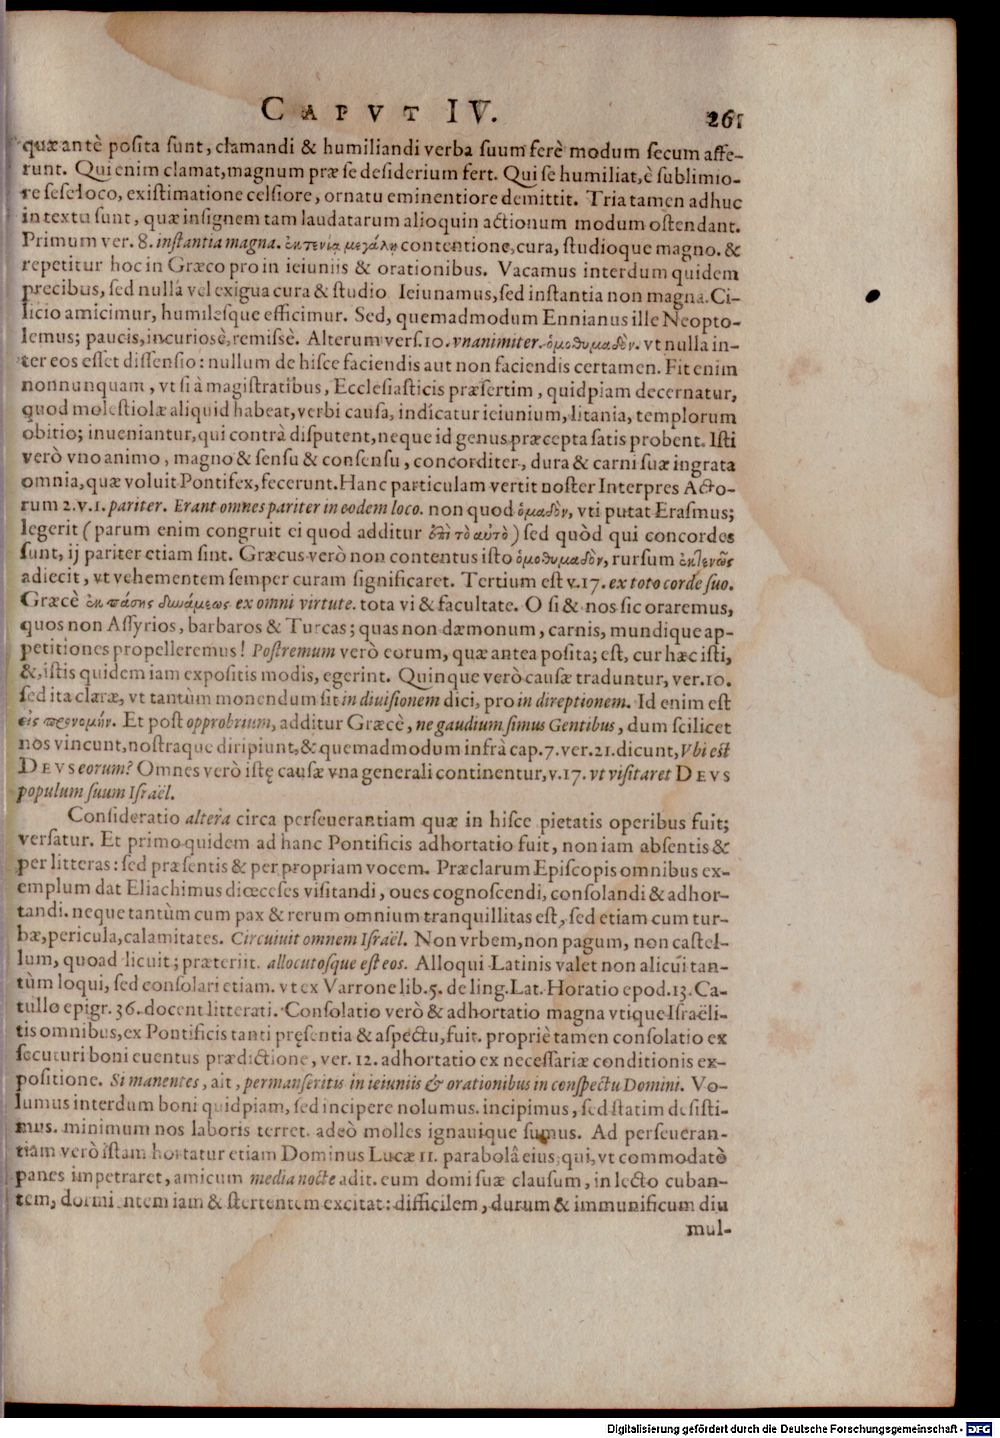 CAPVT IV. 261
quæ antè posita sunt, clamandi & humiliandi verba suum ferè modum secum affe-
runt. Qui enim clamat, magnum præ se desiderium fert. Qui se humiliat, è sublimio-
re sese loco, existimatione celsiore, ornatu eminentiore demittit. Tria tamen adhuc
in textu sunt, quæ insignem tam laudatarum alioquin actionum modum ostendant.
Primum ver. 8. instantia magna. ἐκτενίᾳ μεγάλῃ contentione, cura, studioque magno. &
repetitur hoc in Græco pro in ieiuniis & orationibus. Vacamus interdum quidem
precibus, sed nulla vel exigua cura & studio Ieiunamus, sed instantia non magna. Ci-
licio amicimur, humilesque efficimur. Sed, quemadmodum Ennianus ille Neopto-
lemus; paucis, incuriosè, remissè. Alterum vers. 10. vnanimiter. ὁμοθυμαδὸν. vt nulla in-
ter eos esset dissensio: nullum de hisce faciendis aut non faciendis certamen. Fit enim
nonnunquam, vt si à magistratibus, Ecclesiasticis præsertim, quidpiam decernatur,
quod molestiolæ aliquid habeat, verbi causa, indicatur ieiunium, litania, templorum
obitio; inueniantur, qui contrà disputent, neque id genus præcepta satis probent. Isti
verò vno animo, magno & sensu & consensu, concorditer, dura & carni suæ ingrata
omnia, quæ voluit Pontifex, fecerunt. Hanc particulam vertit noster Interpres Acto-
rum 2. v. 1. pariter. Erant omnes pariter in eodem loco. non quod ὁμαδὸν, vti putat Erasmus;
legerit (parum enim congruit ei quod additur ἐπὶ τὸ αὐτὸ) sed quòd qui concordes
sunt, ij pariter etiam sint. Græcus verò non contentus isto ὁμοθυμαδὸν, rursum ἐκτενῶς
adiecit, vt vehementem semper curam significaret. Tertium est v. 17. ex toto corde suo.
Græcè ἐκ πάσης δυνάμεως ex omni virtute. tota vi & facultate. O si & nos sic oraremus,
quos non Assyrios, barbaros & Turcas; quas non dæmonum, carnis, mundique ap-
petitiones propelleremus! Postremum verò eorum, quæ antea posita; est, cur hæc isti,
&, istis quidem iam expositis modis, egerint. Quinque verò causæ traduntur, ver. 10.
sed ita claræ, vt tantùm monendum sit in diuisionem dici, pro in direptionem. Id enim est
εἰς προνομήν. Et post opprobrium, additur Græcè, ne gaudium simus Gentibus, dum scilicet
nos vincunt, nostraque diripiunt, & quemadmodum infrà cap. 7. ver. 21. dicunt, Vbi est
DEVS eorum? Omnes verò istę causæ vna generali continentur, v. 17. vt visitaret DEVS
populum suum Israël.
Consideratio altera circa perseuerantiam quæ in hisce pietatis operibus fuit;
versatur. Et primo quidem ad hanc Pontificis adhortatio fuit, non iam absentis &
per litteras: sed præsentis & per propriam vocem. Præclarum Episcopis omnibus ex-
emplum dat Eliachimus diœceses visitandi, oues cognoscendi, consolandi & adhor-
tandi. neque tantùm cum pax & rerum omnium tranquillitas est, sed etiam cum tur-
bæ, pericula, calamitates. Circuiuit omnem Israël. Non vrbem, non pagum, non castel-
lum, quoad licuit; præteriit. allocutosque est eos. Alloqui Latinis valet non alicui tan-
tùm loqui, sed consolari etiam. vt ex Varrone lib. 5. de ling. Lat. Horatio epod. 13. Ca-
tullo epigr. 36. docent litterati. Consolatio verò & adhortatio magna vtique Israëli-
tis omnibus, ex Pontificis tanti pręsentia & aspectu, fuit. propriè tamen consolatio ex
secuturi boni euentus prædictione, ver. 12. adhortatio ex necessariæ conditionis ex-
positione. Si manentes, ait, permanseritis in ieiuniis & orationibus in conspectu Domini. Vo-
lumus interdum boni quidpiam, sed incipere nolumus. incipimus, sed statim desisti-
mus. minimum nos laboris terret. adeò molles ignauique sumus. Ad perseueran-
tiam verò istam hortatur etiam Dominus Lucæ 11. parabolâ eius, qui, vt commodatò
panes impetraret, amicum media nocte adit. eum domi suæ clausum, in lecto cuban-
tem, dormientem iam & stertentem excitat: difficilem, durum & immunificum diu
mul-
Digitalisierung gefördert durch die Deutsche Forschungsgemeinschaft - DFG